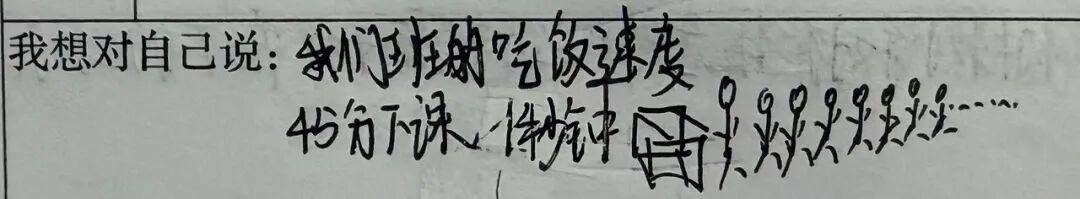 我想对自己说：我们班的吃饭速度
45分下课，1秒钟